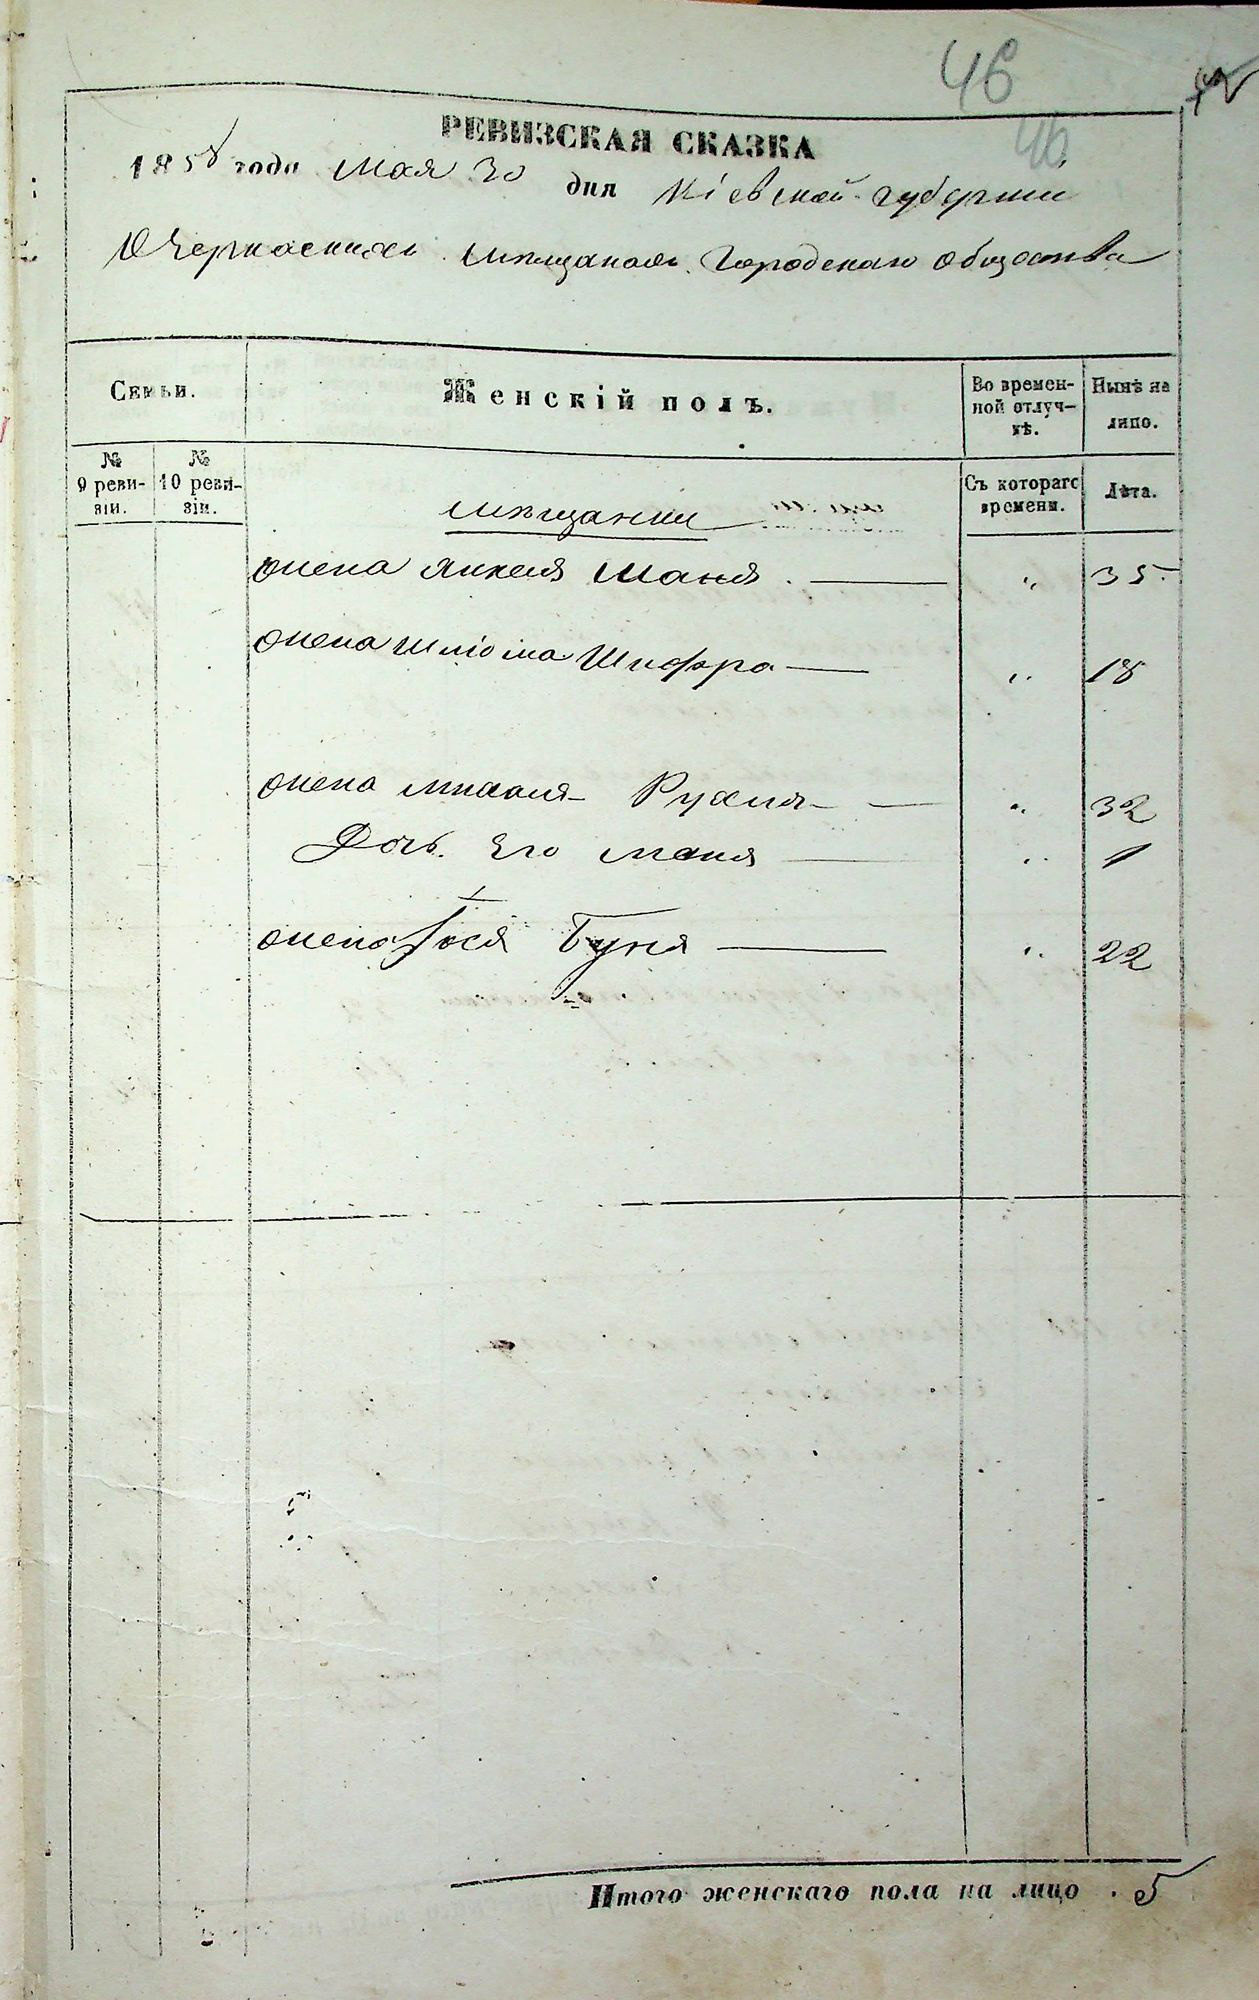 46
46
РЕВИЗСКАЯ СКАЗКА
1858 года Мая 30 дня Кіевской губерніи
О Черкаскихъ мѣщанахъ Городскаго общества
Семьи.
Женскій полъ.
Во времен-
ной отлуч-
кѣ.
Нынѣ на
лицо.
№
9 реви-
зіи.
№
10 реви-
зіи.
Съ котораго
времени.
Лѣта.
мѣщанки
жена Янкеля Маня — „ 35.
жена Шліома Шифра — „ 18
жена Михаля Рухля — „ 32
Дочь Его Маня — „ 1
жена Іося Буня — „ 22
Итого женскаго пола на лицо . 5